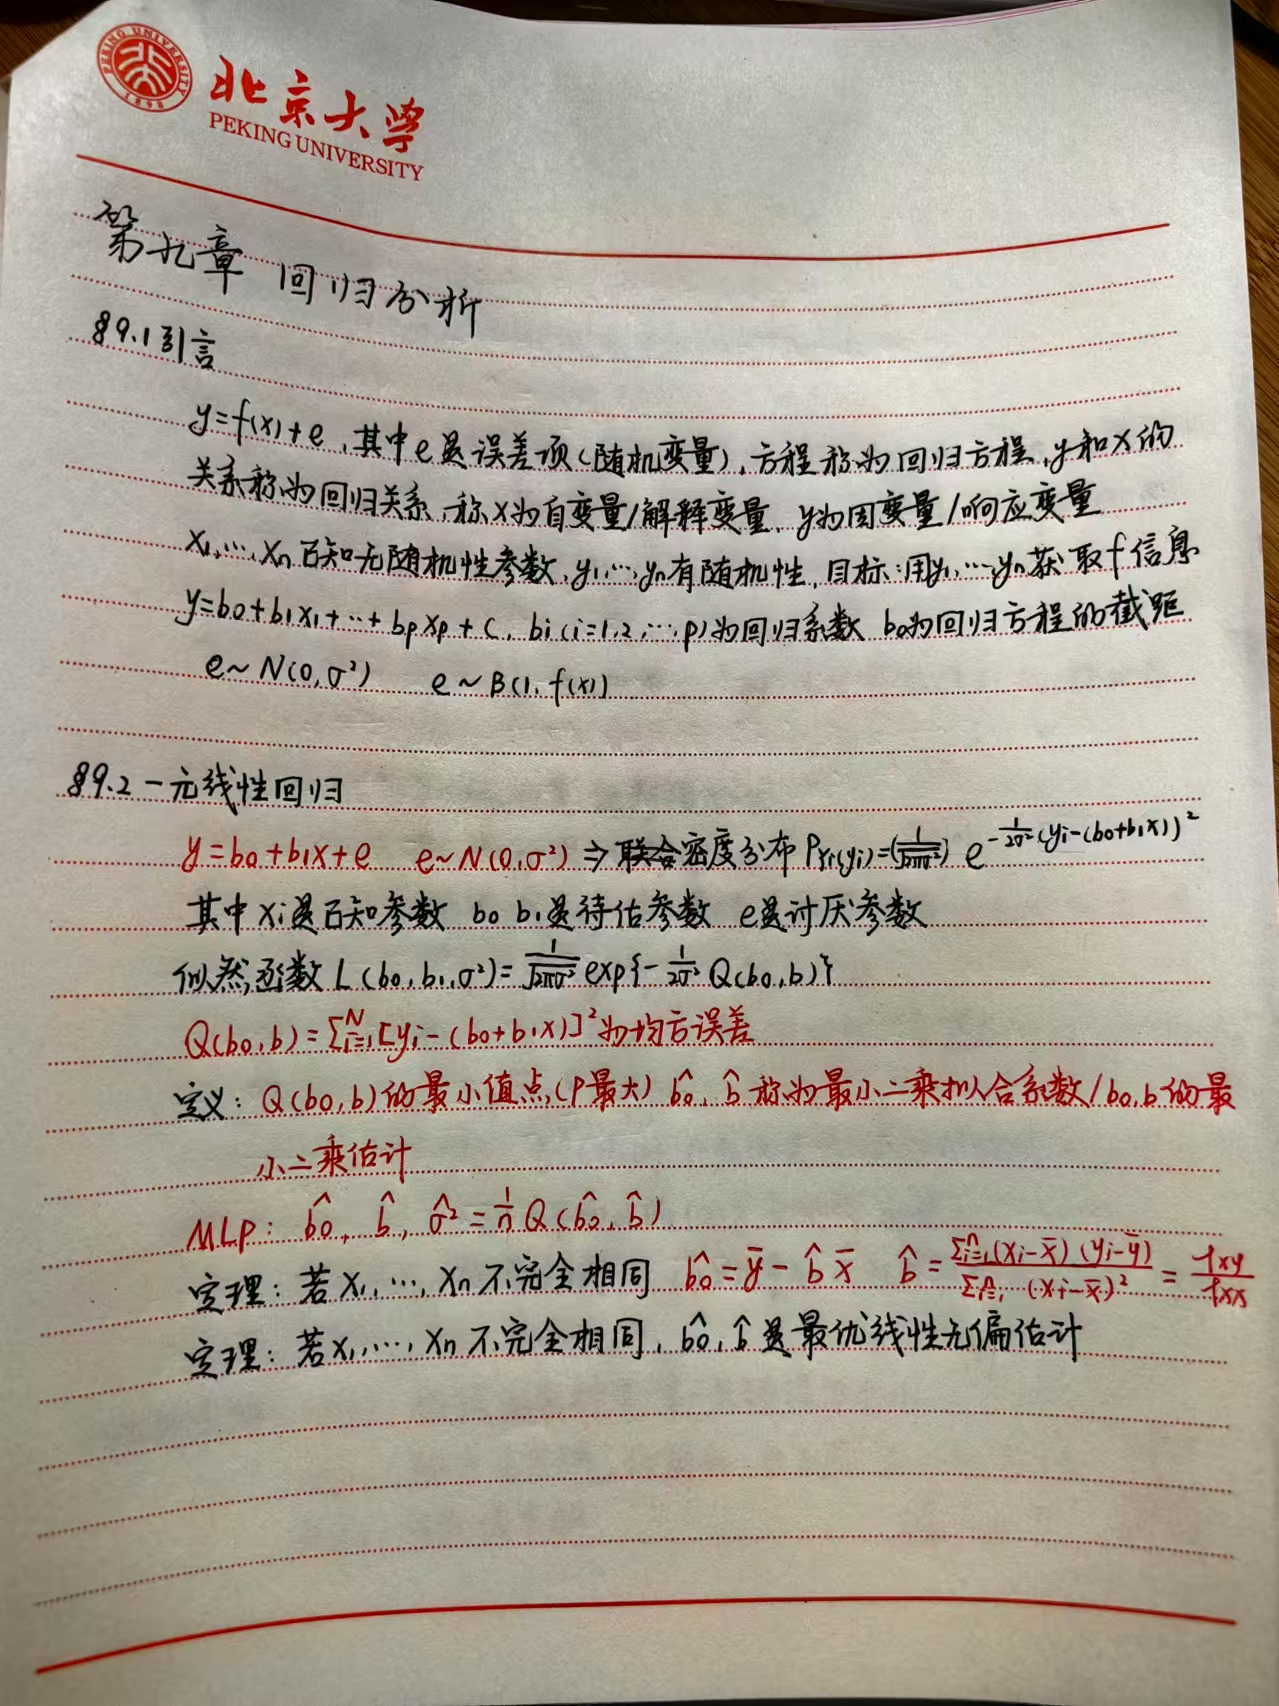 PEKING UNIVERSITY
1898
北京大学
PEKING UNIVERSITY
第九章 回归分析
§9.1 引言
y=f(x)+e，其中e是误差项(随机变量)，方程称为回归方程，y和x的
关系称为回归关系，称x为自变量/解释变量，y为因变量/响应变量
x₁,…,xn 已知无随机性参数，y₁,…,yn有随机性，目标：用y₁,…,yn获取f信息
y=b₀+b₁x₁+…+bpxp+c，bi(i=1,2,…,p)为回归系数 b₀为回归方程的截距
e~N(0,σ²) e~B(1,f(x))
§9.2 一元线性回归
y=b₀+b₁x+e e~N(0,σ²) ⇒ 联合密度分布 PYi(yi)=(1/√2πσ²) e^{-1/2σ²(yi-(b₀+b₁x))²}
其中xi是已知参数 b₀ b₁是待估参数 e是讨厌参数
似然函数 L(b₀,b₁,σ²)=1/√2πσ² exp{-1/2σ² Q(b₀,b)}
Q(b₀,b)=Σᴺi=1[yi-(b₀+b₁x)]²为均方误差
定义：Q(b₀,b)的最小值点(P最大) b̂₀, b̂ 称为最小二乘拟合系数/b₀,b的最
小二乘估计
MLP: b̂₀, b̂, σ̂²=1/n Q(b̂₀,b̂)
定理：若x₁,…,xn不完全相同 b̂₀=ȳ-b̂x̄ b̂=Σⁿi=1(xi-x̄)(yi-ȳ)/Σⁿi=1(xi-x̄)²=lxy/lxx
定理：若x₁,…,xn不完全相同，b̂₀,b̂是最优线性无偏估计